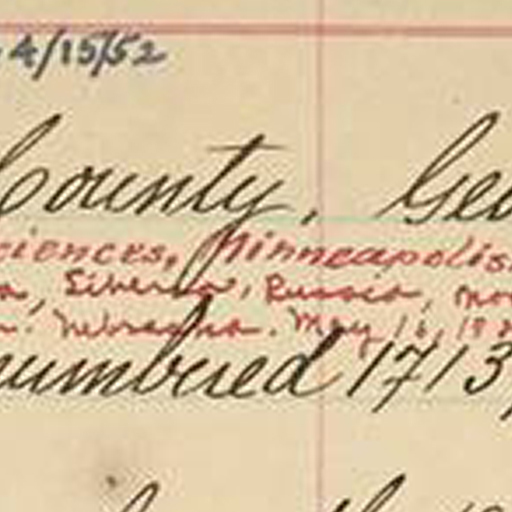 4/15/52
County, Geo
ciences, Minneapolis.
Siberia, Russia,
Nebraska. May 16, 18
numbered 1713,